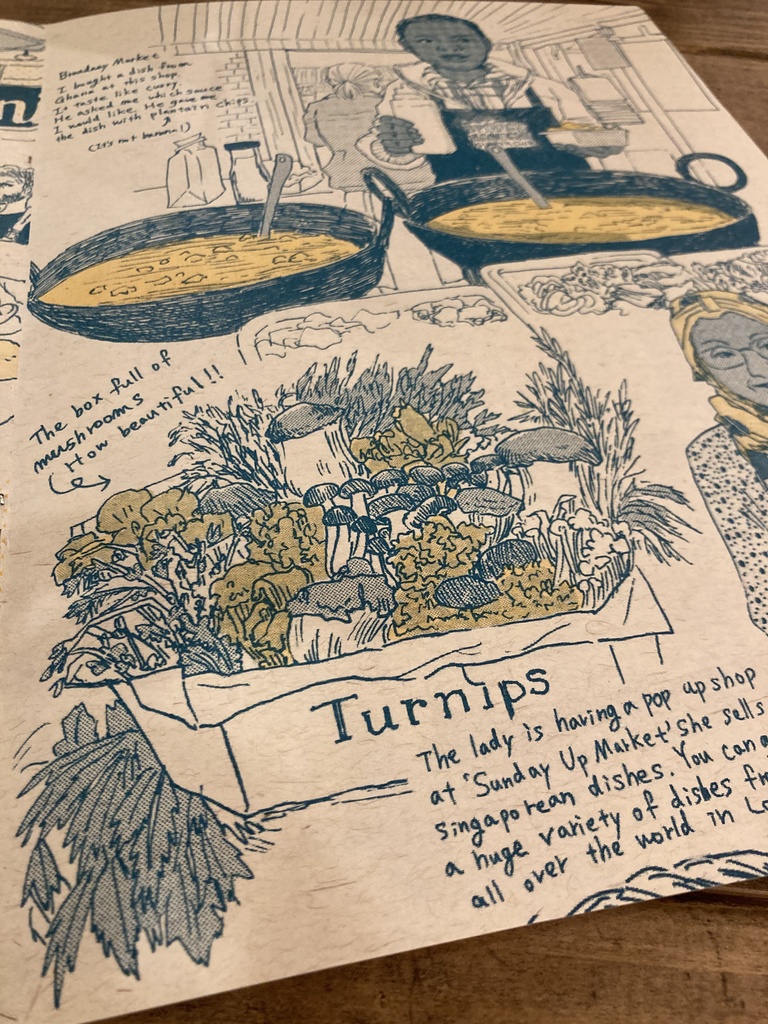 Broadway Market
I bought a dish from
Ghana at this shop.
It taste like curry.
He asked me which sauce
I would like. He gave me
the dish with plantain chips.
(It's not banana!)
The box full of
mushrooms
How beautiful!!
Turnips
The lady is having a pop up shop
at 'Sunday Up Market' She sells
singaporean dishes. You can
a huge variety of dishes
all over the world in